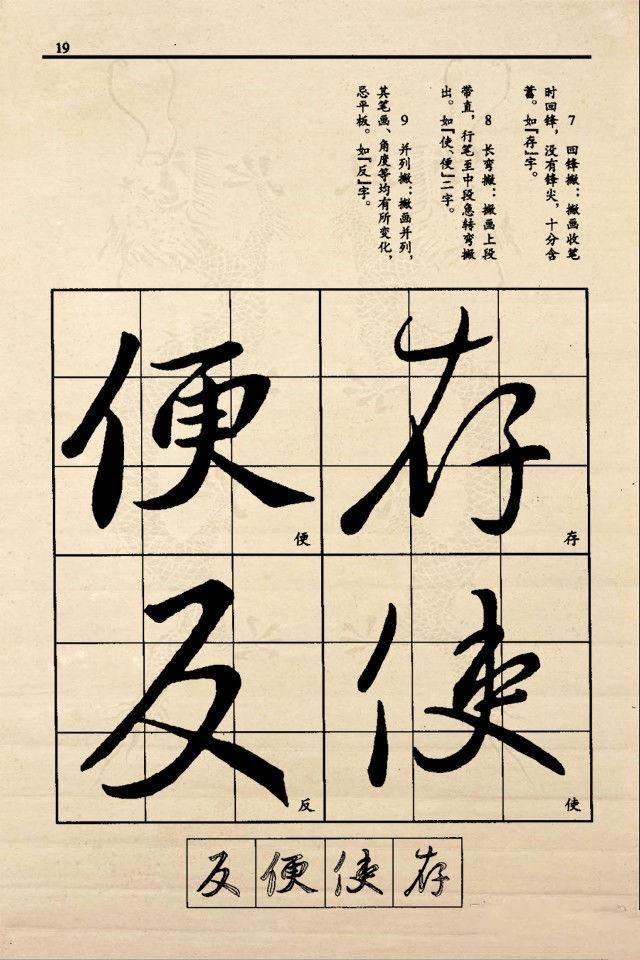 19
7 回锋撇：撇画收笔
时回锋，没有锋尖，十分含
蓄。如『存』字。
8 长弯撇：撇画上段
带直，行笔至中段急转弯撇
出。如『使、便』二字。
9 并列撇：撇画并列，
其笔画、角度等均有所变化，
忌平板。如『反』字。
存
存
使
使
便
便
反
反
反便使存